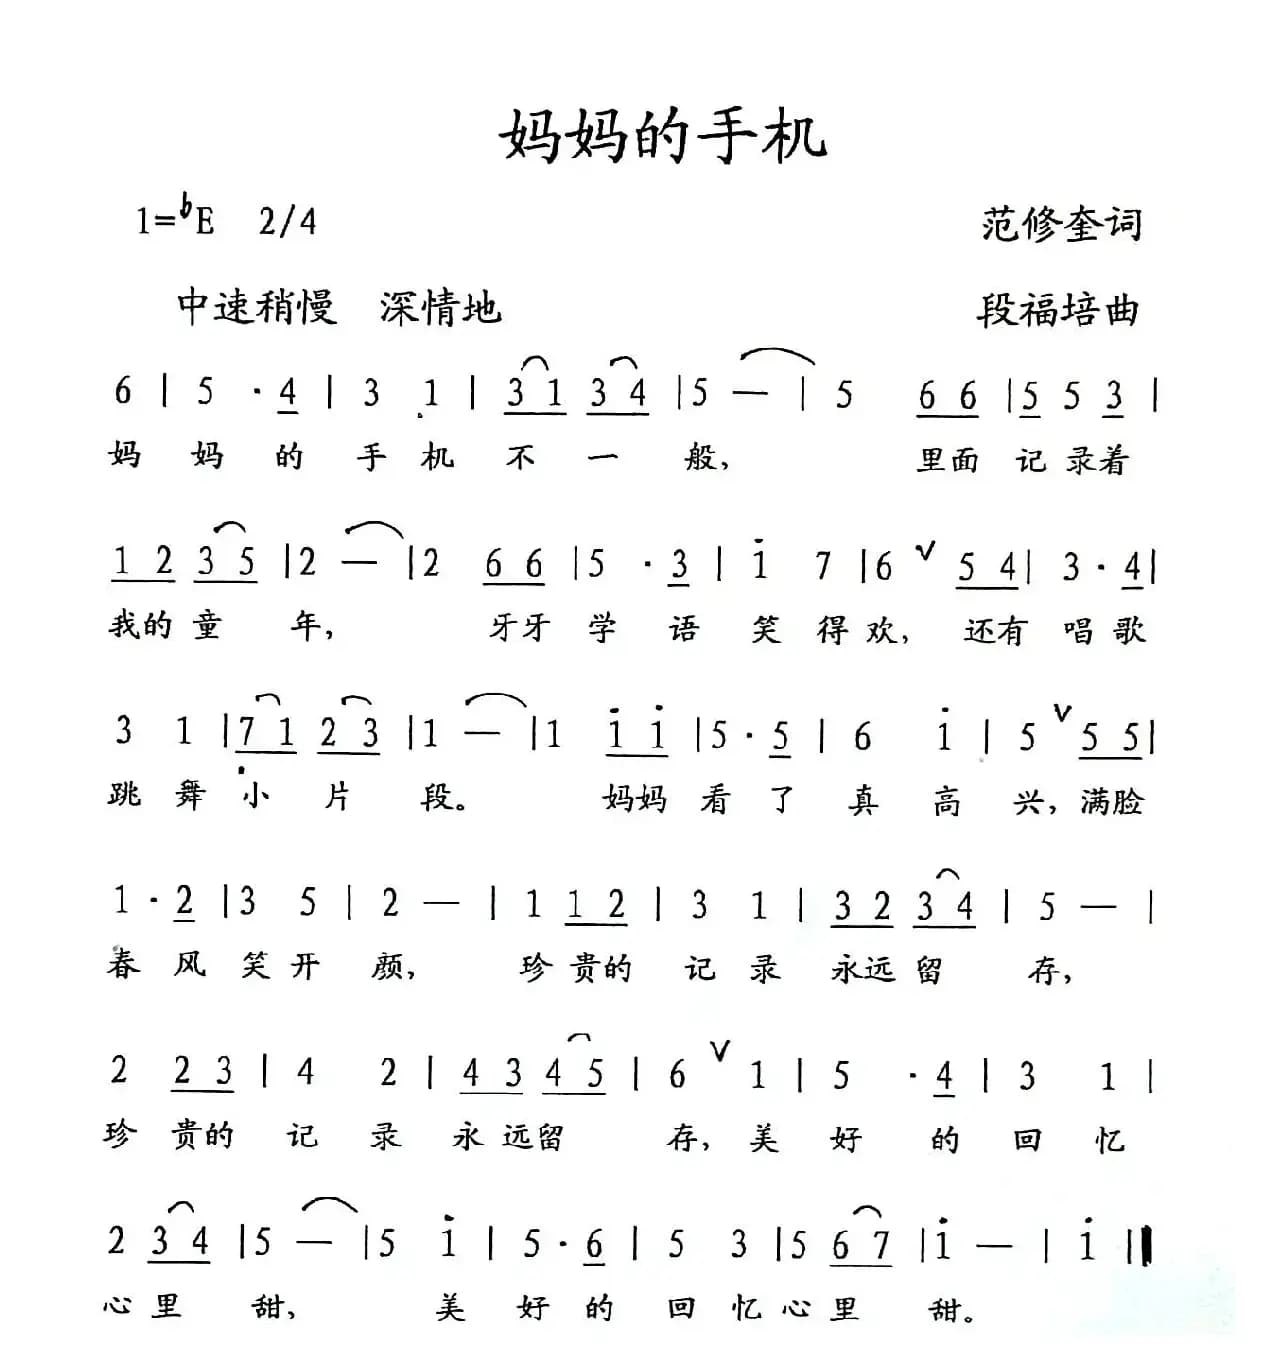 妈妈的手机
1=♭E 2/4 范修奎词
中速稍慢 深情地 段福培曲
6 | 5 · 4 | 3 1 | 3 1 3 4 | 5 — | 5 6 6 | 5 5 3 |
妈 妈 的 手 机 不 一 般, 里面 记 录着
1 2 3 5 | 2 — | 2 6 6 | 5 · 3 | i 7 | 6 ∨ 5 4 | 3 · 4 |
我的 童 年, 牙牙 学 语 笑 得 欢, 还有 唱 歌
3 1 | 7 1 2 3 | 1 — | 1 i i | 5 · 5 | 6 i | 5 ∨ 5 5 |
跳 舞 小 片 段。 妈妈 看 了 真 高 兴, 满脸
1 · 2 | 3 5 | 2 — | 1 1 2 | 3 1 | 3 2 3 4 | 5 — |
春 风 笑 开 颜, 珍 贵的 记 录 永远 留 存,
2 2 3 | 4 2 | 4 3 4 5 | 6 ∨ 1 | 5 · 4 | 3 1 |
珍 贵的 记 录 永 远留 存, 美 好 的 回 忆
2 3 4 | 5 — | 5 i | 5 · 6 | 5 3 | 5 6 7 | i — | i ‖
心 里 甜, 美 好 的 回 忆 心 里 甜。